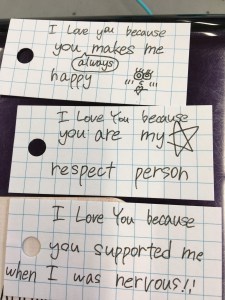 I Love you because
you makes me
always
happy
I Love You because
you are my
respect person
I Love You because
you supported me
when I was nervous!!